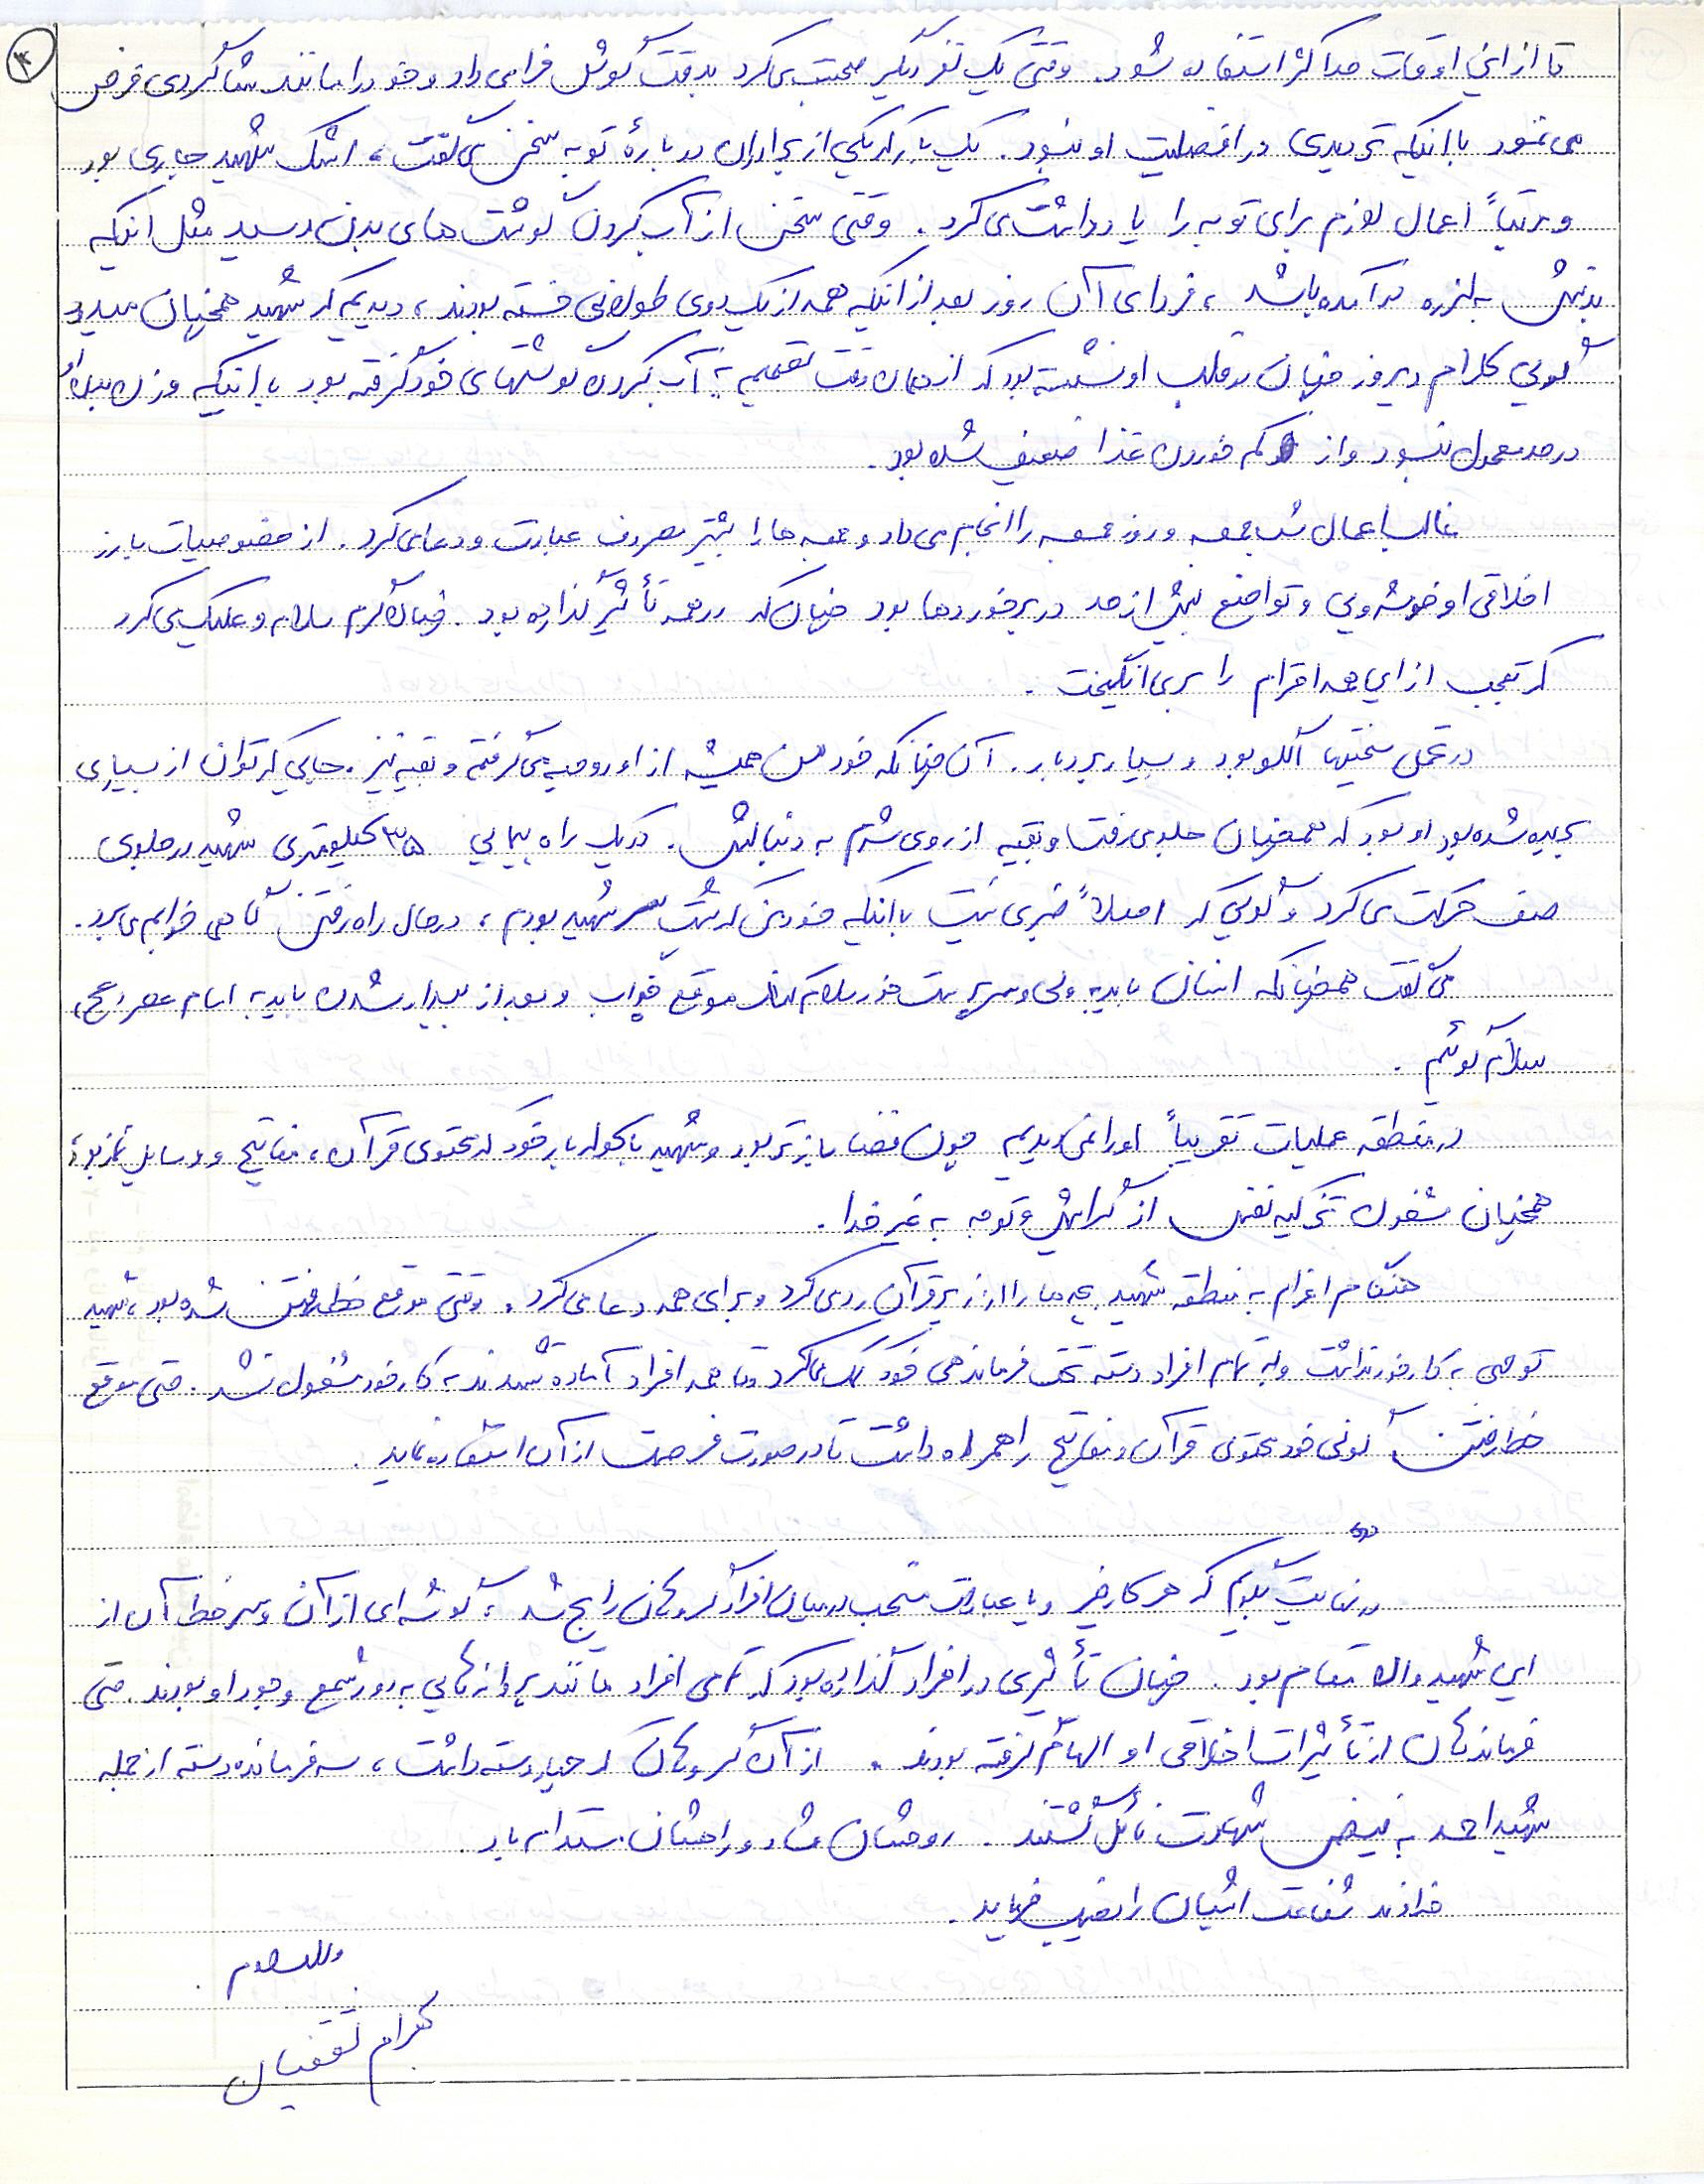 ۳
تا از این اوقات حداکثر استفاده شود. وقتی یک نفر دیگر صحبت می‌کرد بدقت گوش فرا می‌داد و خود را مانند شاگردی فرض
می‌نمود با اینکه تردیدی در افضلیت او نبود. یک بار که یکی از برادران درباره توبه سخن می‌گفت، اشک شهید جاری بود
و مرتباً اعمال لازم برای توبه را یادداشت می‌کرد. وقتی سخن از آب کردن گوشت‌های بدن رسید مثل اینکه
بدنش به لرزه درآمده باشد، فردای آن روز بعد از اینکه همه از یک دوی طولانی خسته بودند، دیدیم که شهید همچنان میدود
گویی کلام دیروز چنان در قلب او نشسته بود که از همان وقت تصمیم به آب کردن گوشتهای خود گرفته بود با اینکه وزن بدن او
در حد معمول نبود و از کم خوردن غذا ضعیف شده بود.
غالب اعمال شب جمعه و روز جمعه را انجام می‌داد و جمعه‌ها را بیشتر مصروف عبادت و دعا می‌کرد. از خصوصیات بارز
اخلاقی او خوشرویی و تواضع بیش از حد در برخوردها بود چنان که در همه تأثیر گذارده بود. چنان گرم سلام و علیک می‌کرد
که تعجب از این همه احترام را برمی‌انگیخت.
در تحمل سختیها الگو بود و بسیار بردبار. آن چنانکه خود من همیشه از او روحیه می‌گرفتم و بقیه نیز. جایی که توان از بسیاری
بریده شده بود او بود که همچنان جلو می‌رفت و بقیه از روی شرم به دنبالش. در یک راه پیمایی ۳۵ کیلومتری شهید در جلوی
صف حرکت می‌کرد و گویی که اصلاً خبری نیست با اینکه خود من که پشت سر شهید بودم، در حال راه رفتن گاهی خوابم می‌برد.
می‌گفت همچنانکه انسان باید به ولی و سرپرست خود سلام کند موقع خواب و بعد از بیدار شدن باید به امام عصر (عج)
سلام گوئیم.
در منطقه عملیات تقریباً او را نمی‌دیدیم چون فضا بازتر بود و شهید با کوله بار خود که محتوی قرآن، مفاتیح و وسایل نماز بود،
همچنان مشغول تزکیه نفس از گرایش و توجه به غیر خدا.
هنگام اعزام به منطقه شهید بچه‌ها را از زیر قرآن رد می‌کرد و برای همه دعا می‌کرد. وقتی موقع خط رفتن شده بود، شهید
توجهی به کار خود نداشت و به تمام افراد دسته تحت فرماندهی خود کمک می‌کرد و تا همه افراد آماده نشدند به کار خود مشغول نشد. حتی موقع
خط رفتن گونی خود محتوی قرآن و مفاتیح را همراه داشت تا در صورت فرصت از آن استفاده نماید.
در نهایت بگویم که هر کار خیر و یا عبادت مستحب در میان افراد گروهان رایج شد، گوشه‌ای از آن و سر خط آن از
این شهید والا مقام بود. چنان تأثیری در افراد گذارده بود که تمامی افراد مانند پروانه‌هایی به دور شمع وجود او بودند. حتی
فرماندهان از تأثیرات اخلاقی او الهام گرفته بودند. از آن گروهان که چهار دسته داشت، سه فرمانده دسته از جمله
شهید احمد به فیض شهادت نائل گشتند. روحشان شاد و راهشان مستدام باد.
خداوند شفاعت ایشان را نصیب فرماید.
والسلام.